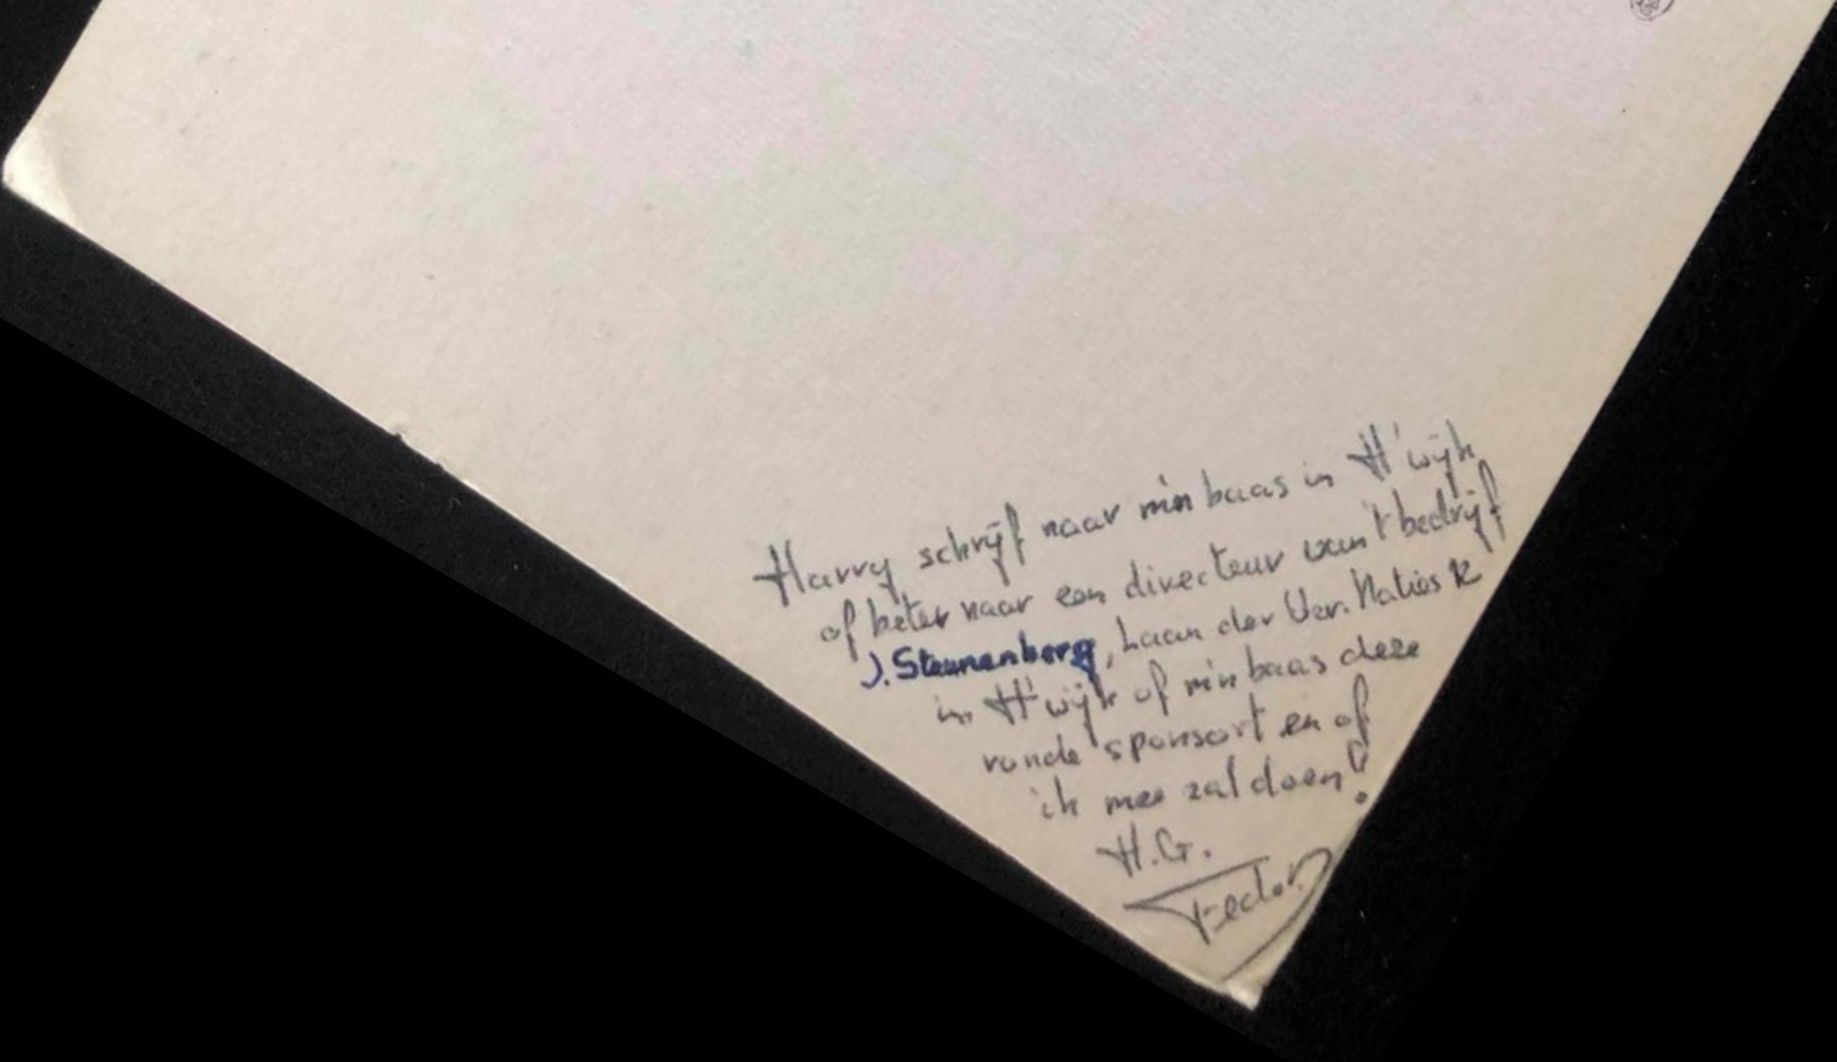 Harry schrijf naar m'n baas in H'wijk
of beter naar een directeur van 't bedrijf
J. Steunenberg, Laan der Ver. Naties 12
in H'wijk of m'n baas deze
ronde sponsort en of
ik mee zal doen!
H.G.
Fedor